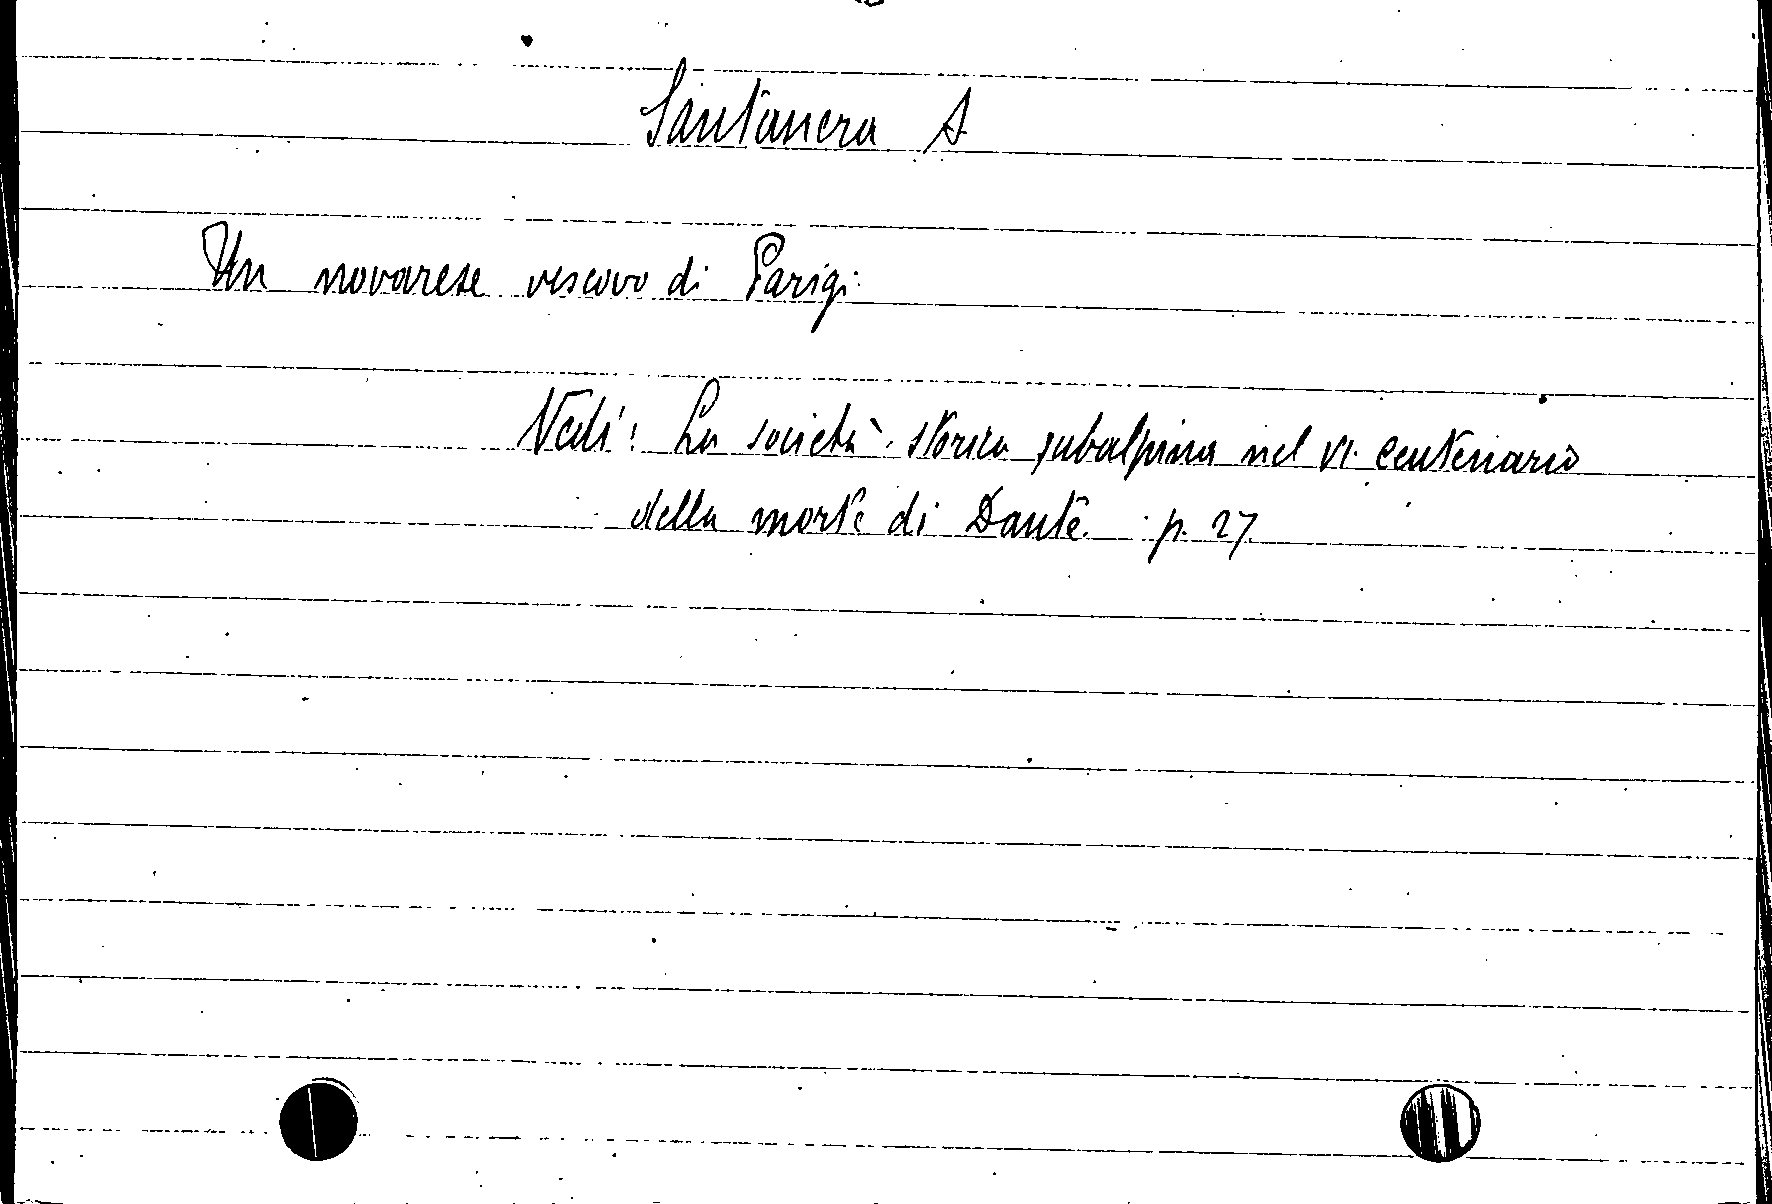 Santanera A.
Un novarese vescovo di Parigi.
Vedi: La società storica subalpina nel VI centenario
della morte di Dante. p. 27.